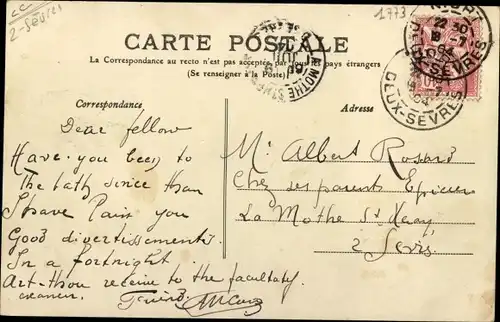 2-Sèvres
1773
CARTE POSTALE
La Correspondance au recto n'est pas acceptée par tous les pays étrangers
(Se renseigner à la Poste)
NIORT
DEUX-SÈVRES
LA MOTHE ST
DEUX-SÈVRES
Correspondance
Adresse
Dear fellow
Have you been to
The bath since than
I have Pain you
Good divertissements
In a fortnight
Art-thou receive to the facultatif
examen.
Mr Albert Rosard
Chez ses parents Epicier
La Mothe St Heray
2 Sevrs